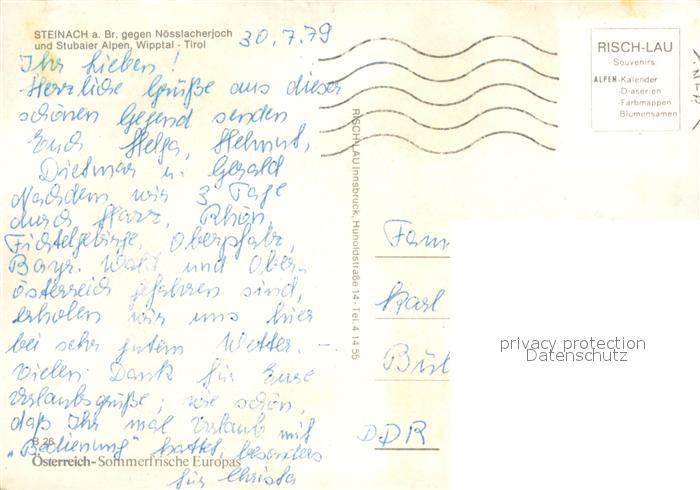 STEINACH a. Br. gegen Nösslacherjoch
und Stubaier Alpen, Wipptal - Tirol
30.7.79
Ihr Lieben!
Herzliche Grüße aus dieser
schönen Gegend senden
Euch Helga, Helmut,
Dietmar u. Gerald
Nachdem wir 3 Tage
durch Harz, Rhön,
Fichtelgebirge, Oberpfalz,
Bayr. Wald und Ober-
österreich gefahren sind,
erholen wir uns hier
bei sehr gutem Wetter. –
Vielen Dank für Eure
Urlaubsgrüße; wie schön,
daß Ihr mal Urlaub mit
"Bedienung" hattet, besonders
für Christa
B 26
Österreich-Sommerfrische Europas
RISCH-LAU Innsbruck, Hunoldstraße 14 - Tel. 4 14 55
RISCH-LAU
Souvenirs
ALPEN-Kalender
-Diaserien
-Farbmappen
-Blumensamen
Fam
Karl
DDR
privacy protection
Datenschutz